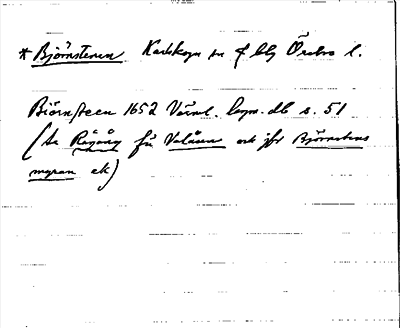 * Björnstenen Karlskoga sn f. blj Örebro l.
Biörnsteen 1652 Värml. s. 51
(se Rågång för Valåsen och jfr Björnstens
myran ek)